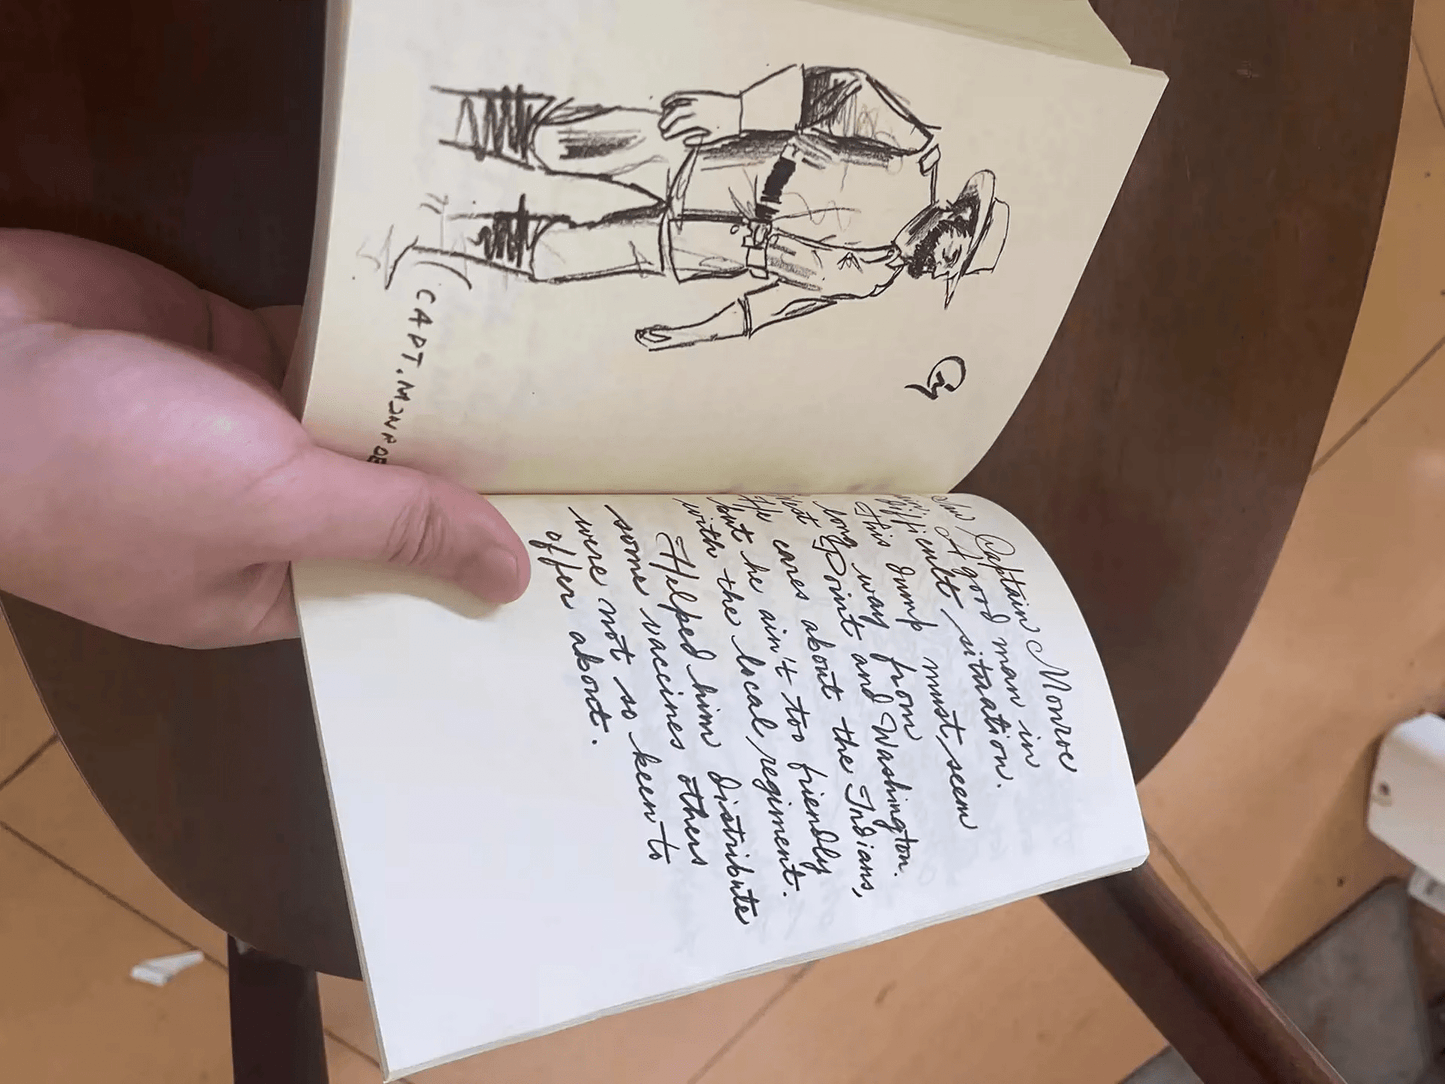 CAPT. MONROE
Captain Monroe
A good man in
difficult situation.
This dump must seem
long way from
West Point and Washington.
He cares about the Indians,
but he ain't too friendly
with the local regiment.
Helped him distribute
some vaccines others
were not so keen to
offer about.